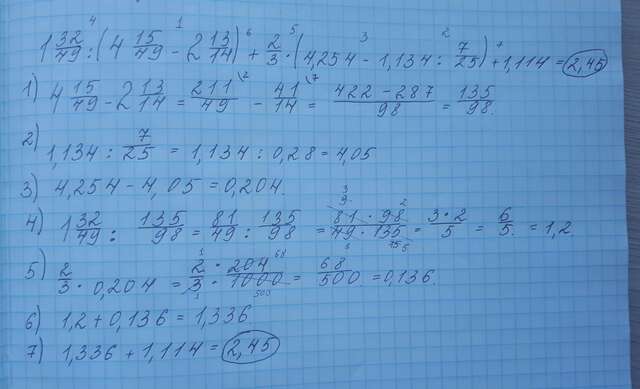 1 32/49 : (4 15/49 - 2 13/14) + 2/3 · (4,254 - 1,134 : 7/25) + 1,114 = 2,45
1) 4 15/49 - 2 13/14 = 211/49 - 41/14 = (422 - 287)/98 = 135/98.
2) 1,134 : 7/25 = 1,134 : 0,28 = 4,05
3) 4,254 - 4,05 = 0,204.
4) 1 32/49 : 135/98 = 81/49 : 135/98 = (81 · 98)/(49 · 135) = (3 · 2)/5 = 6/5 = 1,2
5) 2/3 · 0,204 = (2 · 204)/(3 · 1000) = 68/500 = 0,136.
6) 1,2 + 0,136 = 1,336
7) 1,336 + 1,114 = 2,45